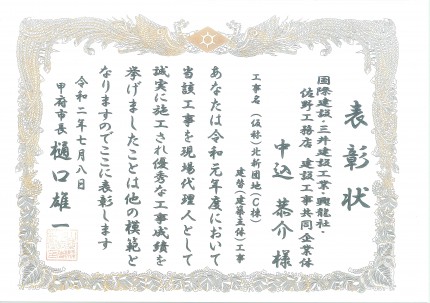 表彰状
国際建設・三井建設工業・興龍社・
佐野工務店 建設工事共同企業体
中込 恭介 様
工事名 (仮称)北新団地(C棟)
建替(建築主体)工事
あなたは令和元年度において
当該工事を現場代理人として
誠実に施工され優秀な工事成績を
挙げましたことは他の模範と
なりますのでここに表彰します
令和二年七月八日
甲府市長 樋口雄一